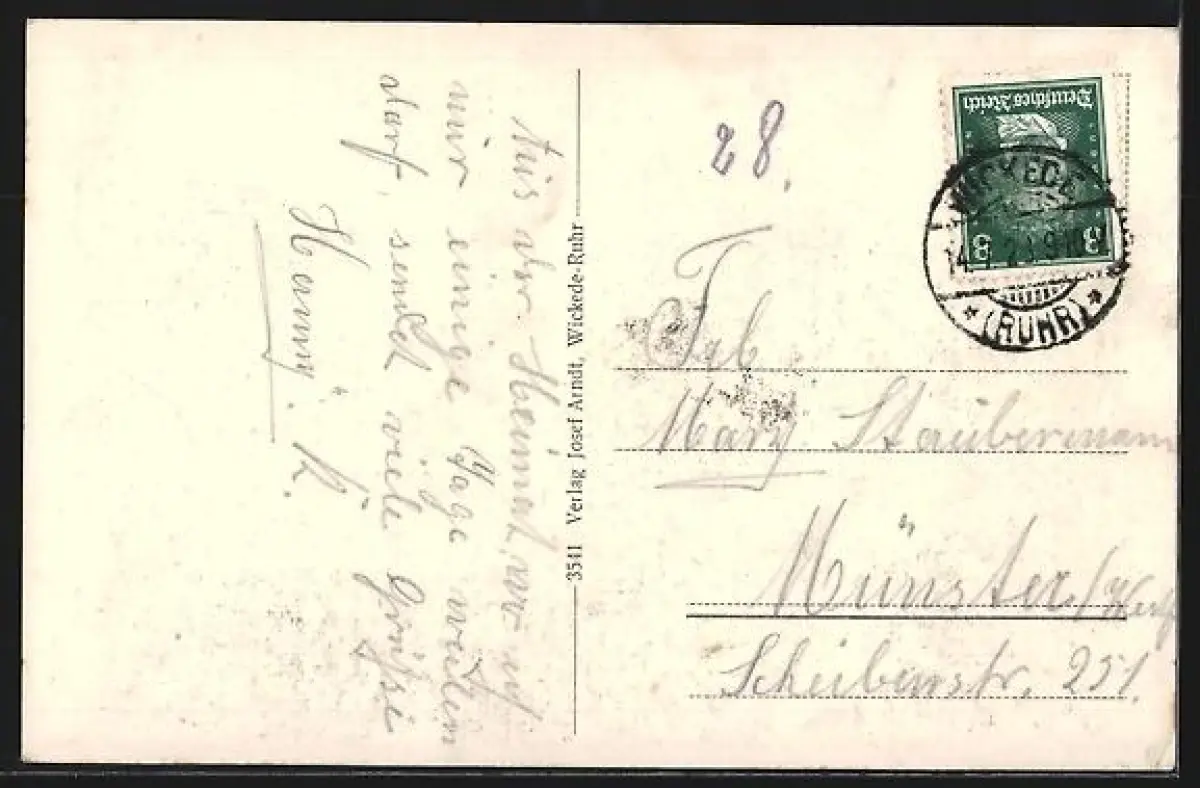 Aus der Heimat, wo ich
mir einige Tage weilen
darf, sendet viele Grüsse
Hanny. K.
3541 Verlag Josef Arndt, Wickede-Ruhr
28.
Deutsches Reich
8 8
WICKEDE
(RUHR)
Frl.
Mary Staubermann
Münster/Westf
Scheibenstr. 251.